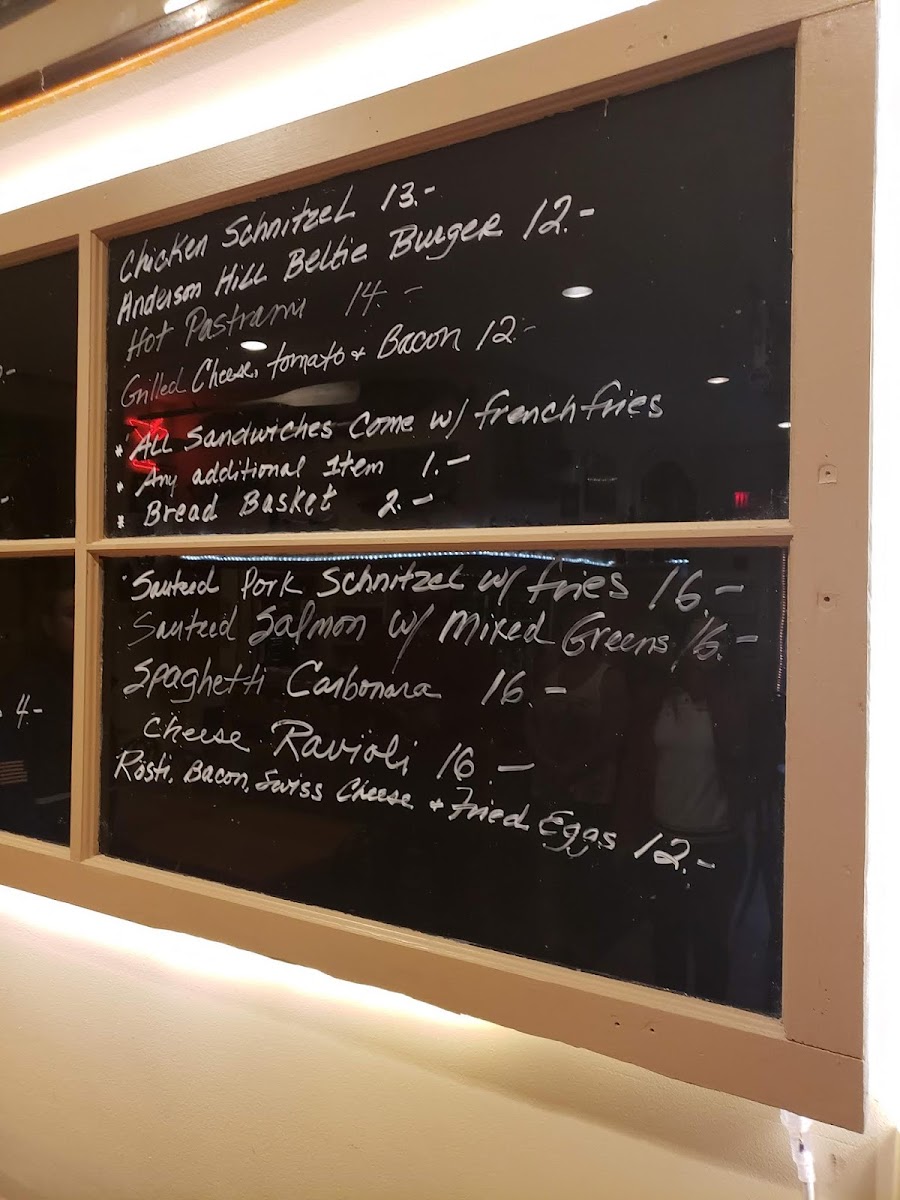 Chicken Schnitzel 13.-
Anderson Hill Beltie Burger 12.-
Hot Pastrami 14.-
Grilled Cheese, tomato & Bacon 12.-
* All Sandwiches Come w/ french fries
* Any additional Item 1.-
* Bread Basket 2.-
Sauteed Pork Schnitzel w/ fries 16.-
Sauteed Salmon w/ Mixed Greens 16.-
Spaghetti Carbonara 16.-
Cheese Ravioli 16.-
Rösti, Bacon, Swiss Cheese & Fried Eggs 12.-
4.-